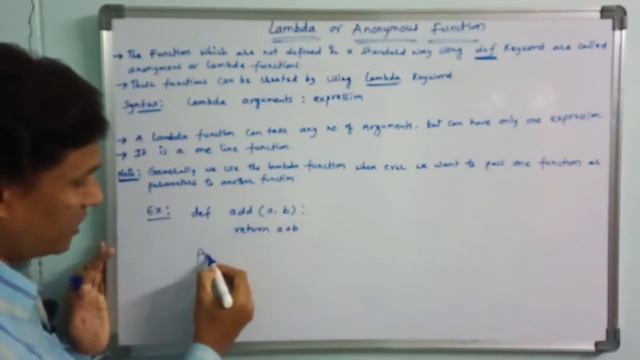 Lambda or Anonymous Function
→ The Function which are not defined in a standard way using def Keyword are called
anonymous or lambda functions.
→ These functions can be created by using Lambda Keyword
Syntax: Lambda arguments : expression
→ A Lambda function can take any no of Arguments, but can have only one expression.
→ It is a one line function.
Note: Generally we use the lambda function when ever we want to pass one function as
parameters to another function
Ex: def add (a, b) :
return a+b